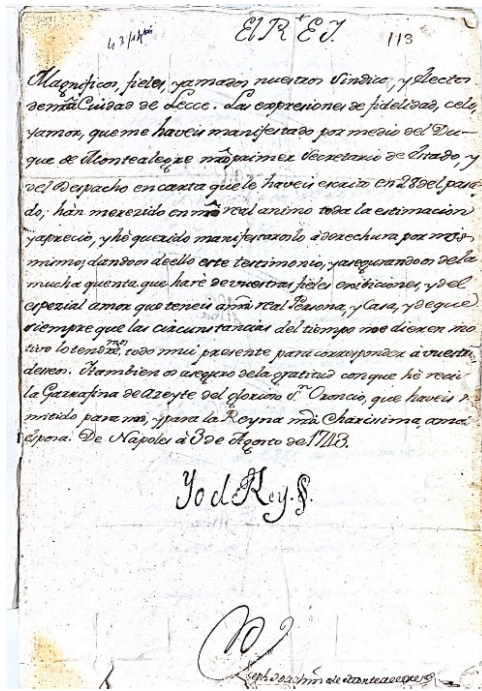 El REY.
113
Magnificos, fieles, y amados nuestros Sindico, y Electos
de nrã Ciudad de Lecce. Las expresiones de fidelidad, celo,
y amor, que me haveis manifestado por medio del Du-
que de Montealegre mi primer Secretario de Estado, y
del Despacho en carta que le haveis escrito en 28 del pasa
do, hàn merezido en mi real animo toda la estimacion
y aprecio, y hè querido manifestaroslo à derechura por mi
mismo, dandoos de ello este testimonio, y asegurandoos de la
mucha quenta que harè de vuestras fieles , y del
espezial amor que teneis à mi real Persona, y Casa, y de que
siempre que las circunstancias del tiempo me dieren mo
tivo lo tendrè todo mui presente para corresponder à vuestros
deseos. Tambien os aseguro de la gratitud con que hè reci
la Garrafina de Azeyte del glorioso Sn. Oroncio, que haveis re
mitido para mi, y para la Reyna mi Charissima, amada
Esposa. De Napoles à 3 de Agosto de 1743.
Yo el Rey.
Joseph Joachin de Montealegre